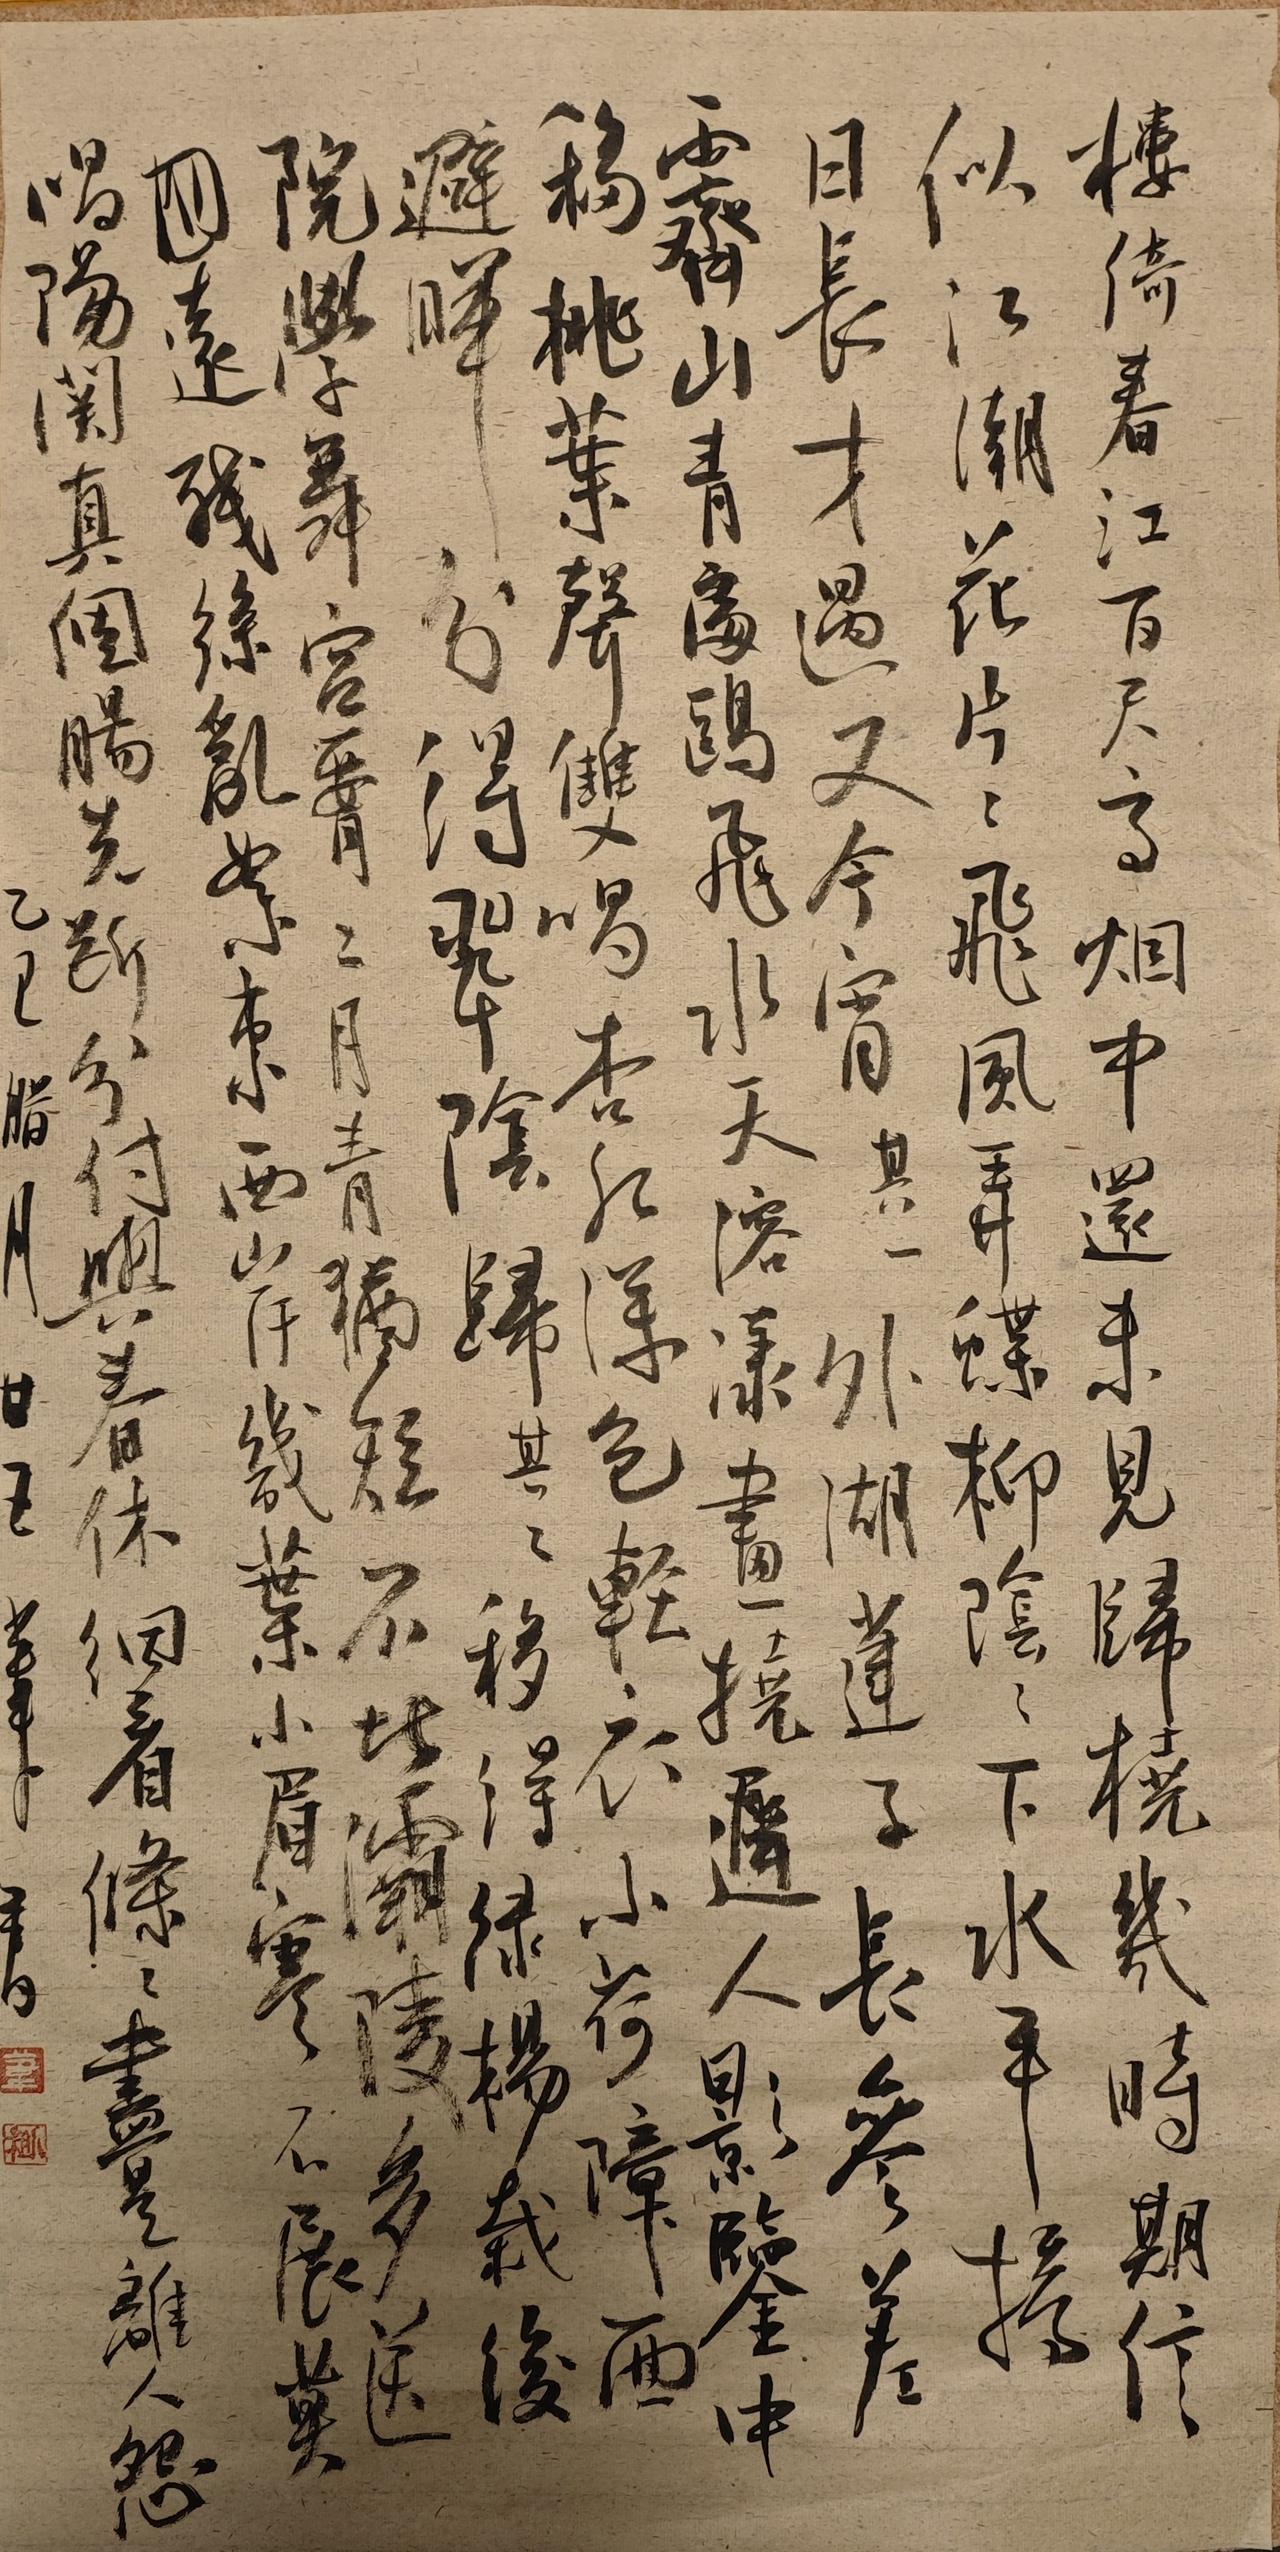 樓倚春江百尺高烟中還未見歸橈幾時期信
似江潮花片〻飛風弄蝶柳陰〻下水平橋
日長才過又今宵其一外湖蓮子長參差
霽山青處鷗飛水天溶漾畫橈遲人影鑒中
移桃葉聲雙唱杏紅深色輕衣小荷障面
避暉分得翠陰歸其二移得綠楊栽後
院學舞宮腰二月青猶短不比灞陵多送
遠殘絲亂絮東西岸幾葉小眉寒不展莫
唱陽關真個腸先斷分付與春休細看條〻盡是離人怨
乙巳腊月廿五